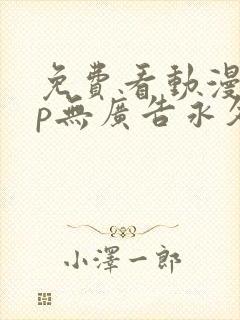 免費看動漫
p無廣告永久
小澤一郎